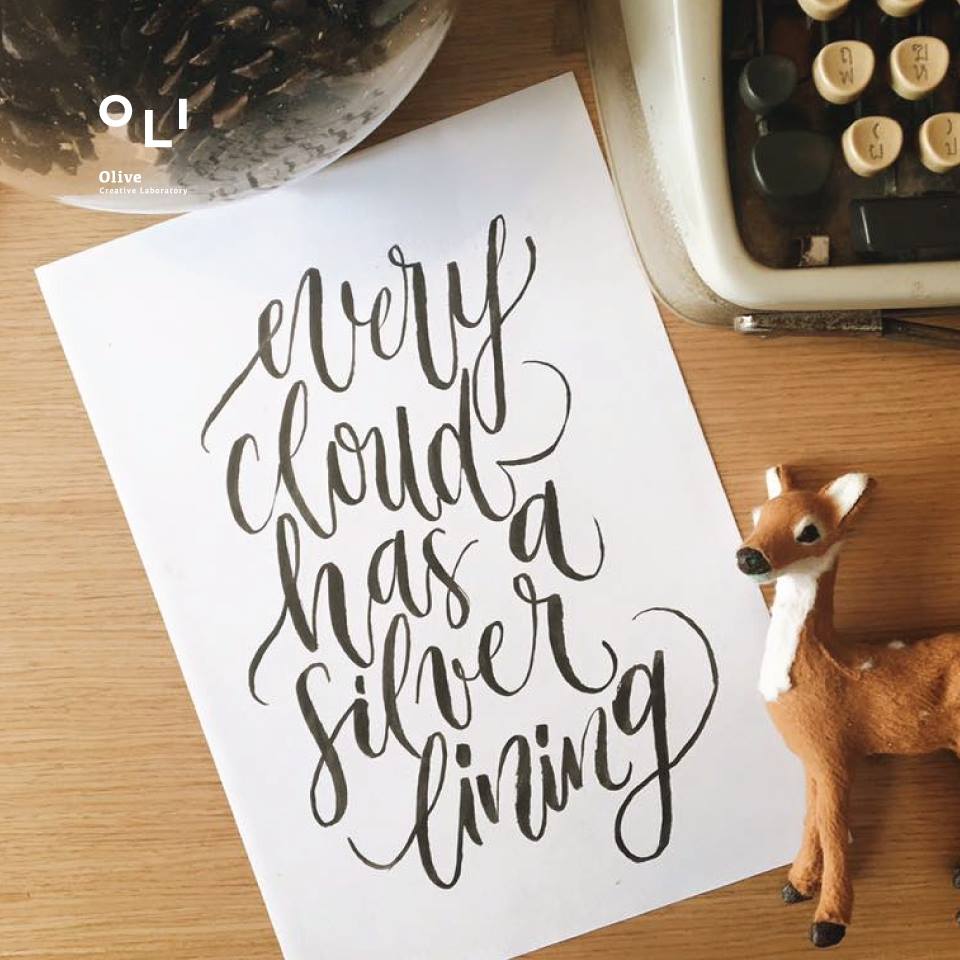 OLI
Olive
Creative Laboratory
every
cloud
has a
silver
lining